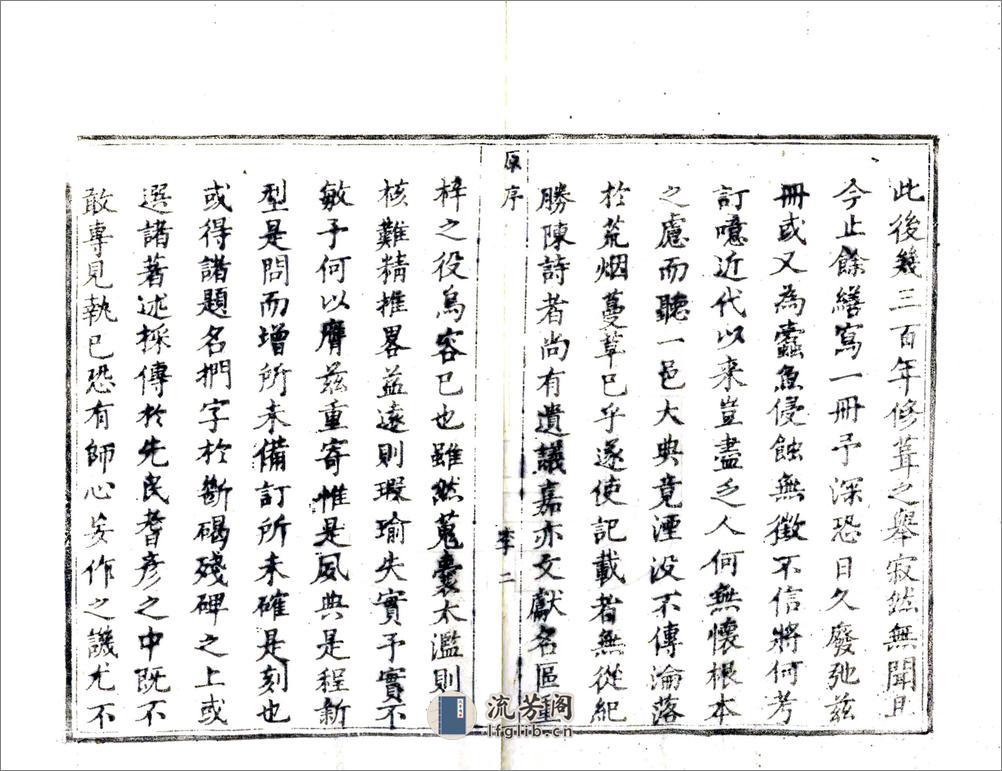 此後幾三百年修葺之舉寂然無聞且
今止餘繕寫一冊予深恐日久廢弛茲
冊或又為蠹魚侵蝕無徵不信將何考
訂噫近代以來豈盡乏人何無懷根本
之慮而聽一邑大典竟湮没不傳淪落
於荒烟蔓草已乎遂使記載者無從紀
勝陳詩者尚有遺議嘉亦文獻名區重
原序
李二
梓之役烏容已也雖然蒐囊太濫則
核難精推畧益遠則瑕瑜失實予實不
敏予何以膺茲重寄惟是夙典是程新
型是問而增所未備訂所未確是刻也
或得諸題名捫字於斷碣殘碑之上或
選諸著述採傳於先民耆彥之中既不
敢專見執已恐有師心妄作之譏尤不
流芳阁
lfglib.cn